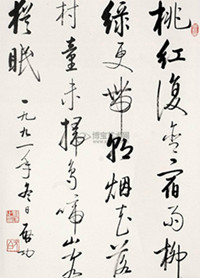 桃紅復含宿雨柳
綠更帶朝烟花落
村童未掃鳥啼山客
猶眠
一九九一年冬日 啓功